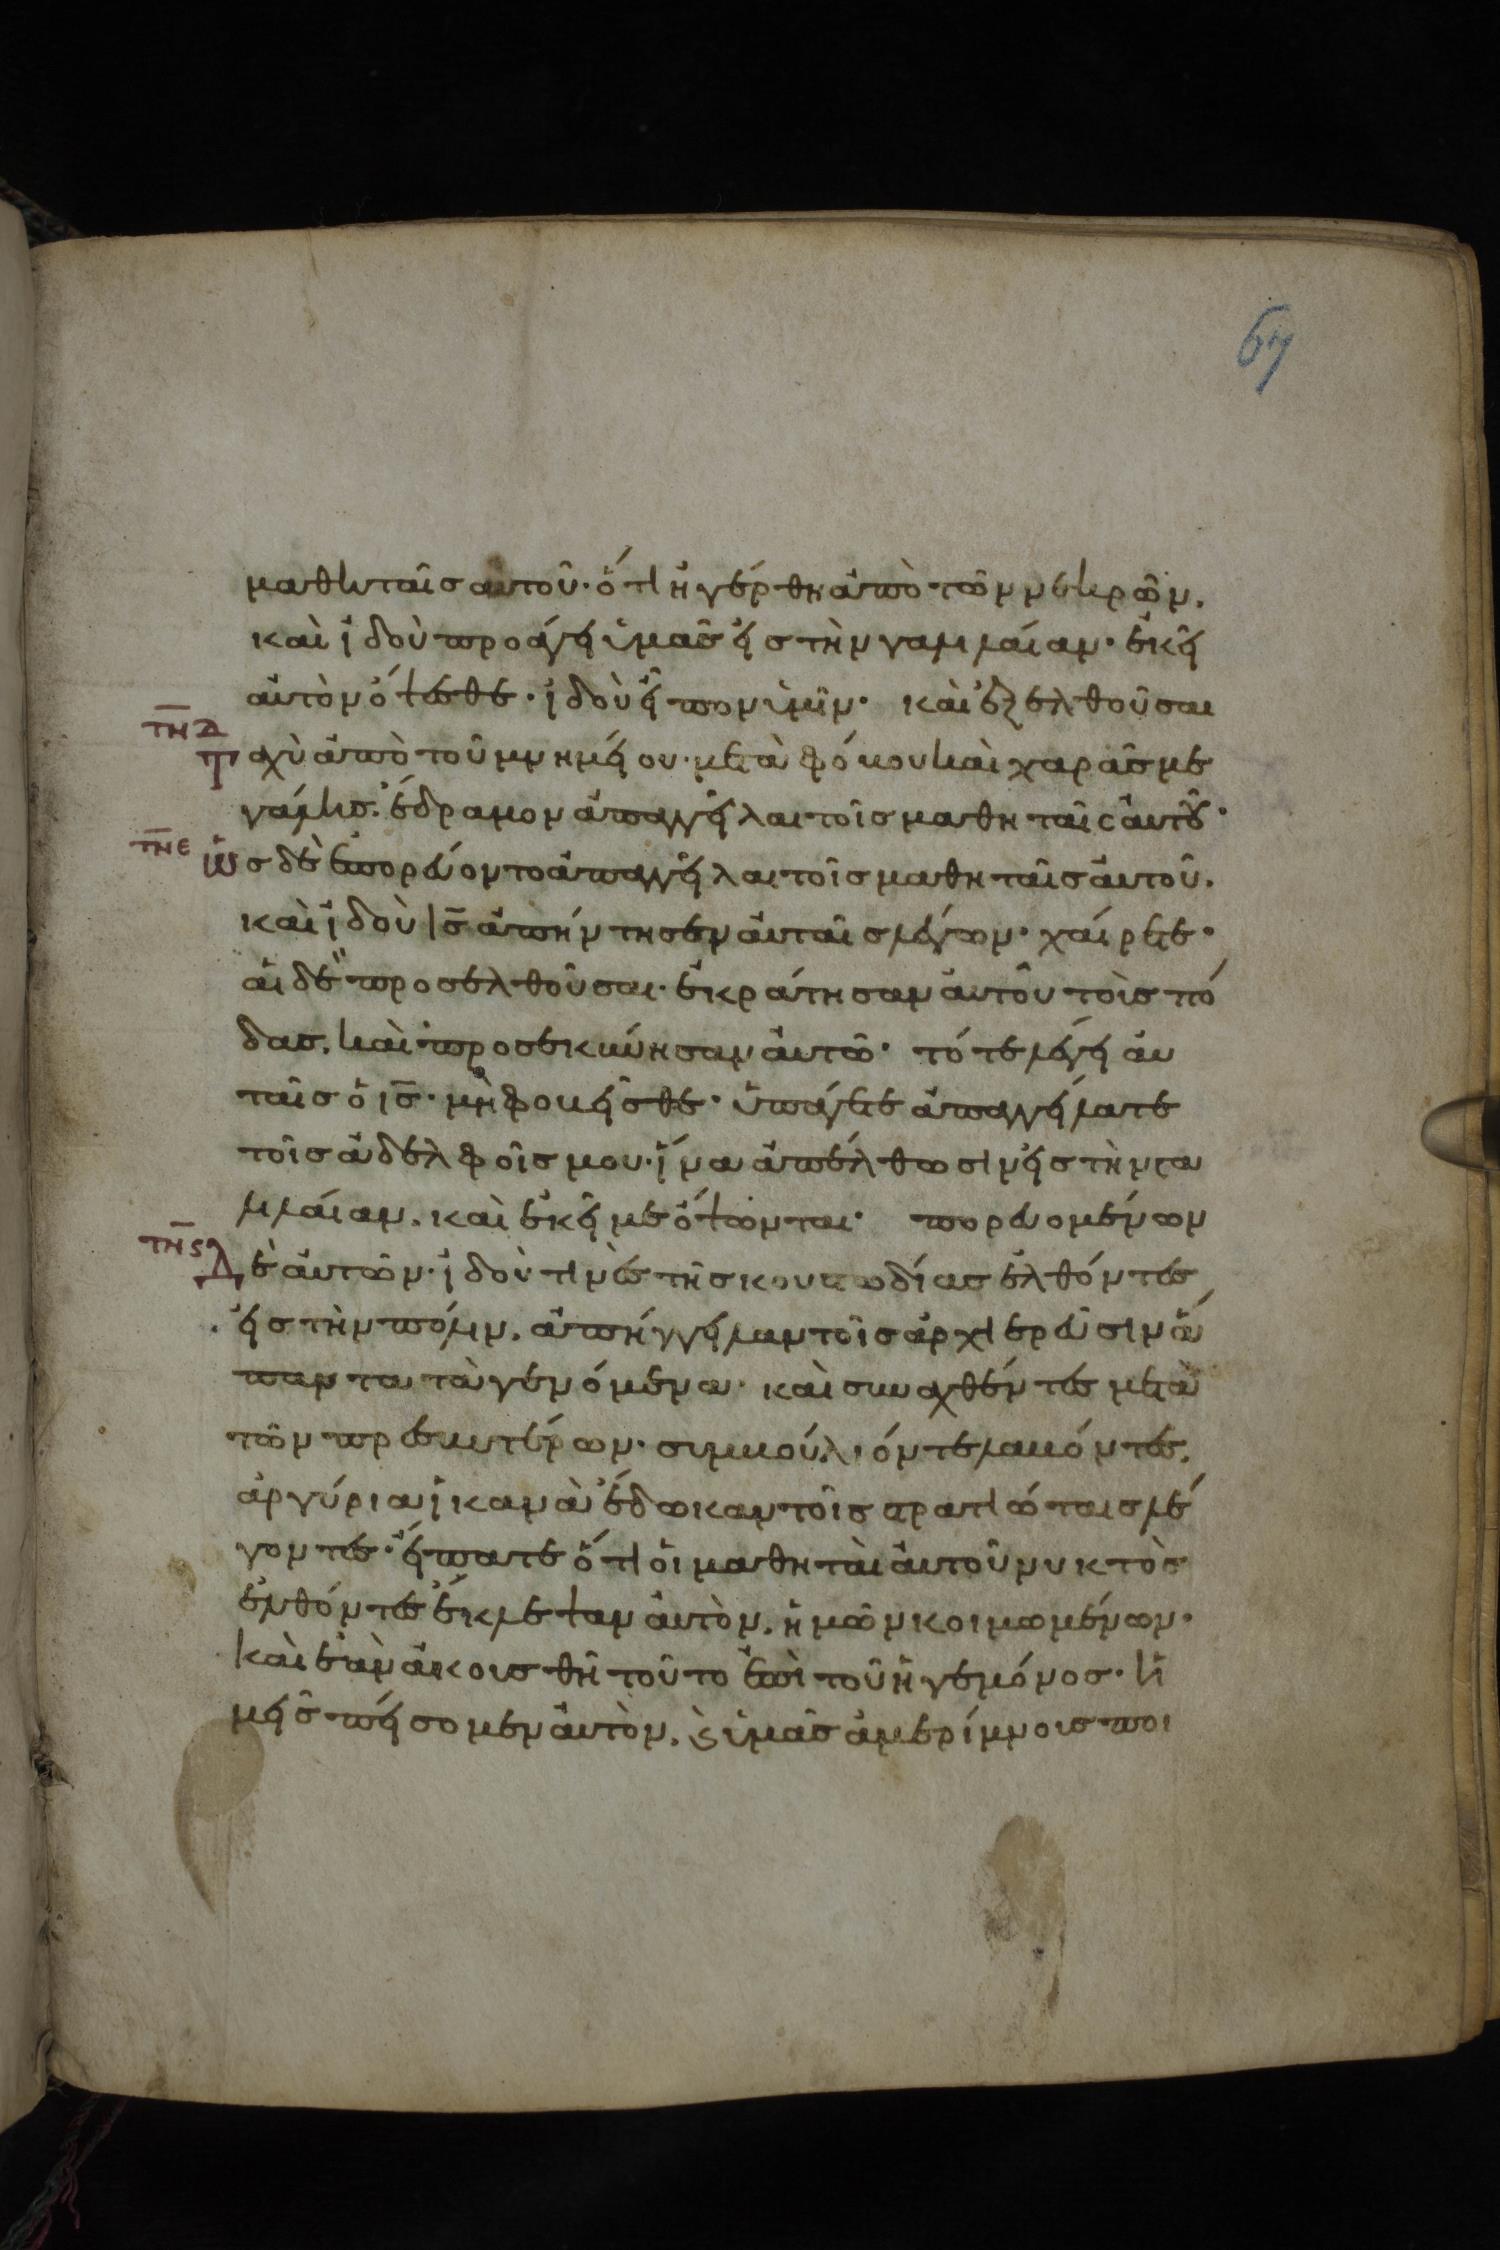 67
μαθηταῖς αὐτοῦ· ὅτι ἠγέρθη ἀπὸ τῶν νεκρῶν.
καὶ ἰδοὺ προάγει ὑμᾶς εἰς τὴν γαλιλαίαν· ἐκεῖ
αὐτὸν ὄψεσθε· ἰδοὺ εἶπον ὑμῖν· καὶ ἐξελθοῦσαι
τῇ δ
ταχὺ ἀπὸ τοῦ μνημείου· μετὰ φόβου καὶ χαρᾶς με
γάλης· ἔδραμον ἀπαγγεῖλαι τοῖς μαθηταῖς αὐτοῦ·
τῇ ε
ὡς δὲ ἐπορεύοντο ἀπαγγεῖλαι τοῖς μαθηταῖς αὐτοῦ.
καὶ ἰδοὺ ις̅ ἀπήντησεν αὐταῖς λέγων· χαίρετε·
αἱ δὲ προσελθοῦσαι· ἐκράτησαν αὐτοῦ τοὺς πό
δας. καὶ προσεκύνησαν αὐτῷ· τότε λέγει αὐ
ταῖς ὁ ις̅· μὴ φοβεῖσθε· ὑπάγετε ἀπαγγείλατε
τοῖς ἀδελφοῖς μου· ἵνα ἀπέλθωσιν εἰς τὴν γα
λιλαίαν. καὶ ἐκεῖ με ὄψονται· πορευομένων
τῇ ς
δὲ αὐτῶν· ἰδού τινες τῆς κουστωδίας ἐλθόντες
εἰς τὴν πόλιν. ἀπήγγειλαν τοῖς ἀρχιερεῦσιν ἅ
παντα τὰ γενόμενα· καὶ συναχθέντες μετὰ
τῶν πρεσβυτέρων· συμβούλιόν τε λαβόντες.
ἀργύρια ἱκανὰ ἔδωκαν τοῖς στρατιώταις λέ
γοντες· εἴπατε ὅτι οἱ μαθηταὶ αὐτοῦ νυκτὸς
ἐλθόντες ἔκλεψαν αὐτὸν. ἡμῶν κοιμωμένων·
καὶ ἐὰν ἀκουσθῇ τοῦτο ἐπὶ τοῦ ἡγεμόνος· ἡ
μεῖς πείσομεν αὐτὸν. ϗ ὑμᾶς ἀμερίμνους ποι